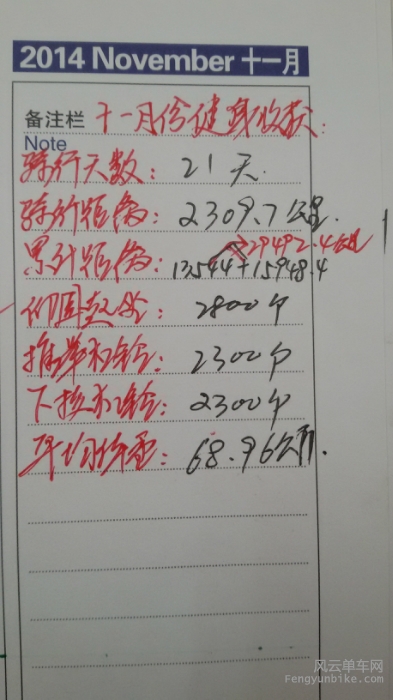 2014 November 十一月
备注栏 十一月份健身收获:
Note
骑行天数: 21天.
骑行距离: 2309.7公里.
29492.4公里
累计距离: 13544+15948.4
仰卧起坐: 2800个
2300个
下拉杠铃: 2300个
平均体重: 68.96公斤.
风云单车网
Fengyunbike.com